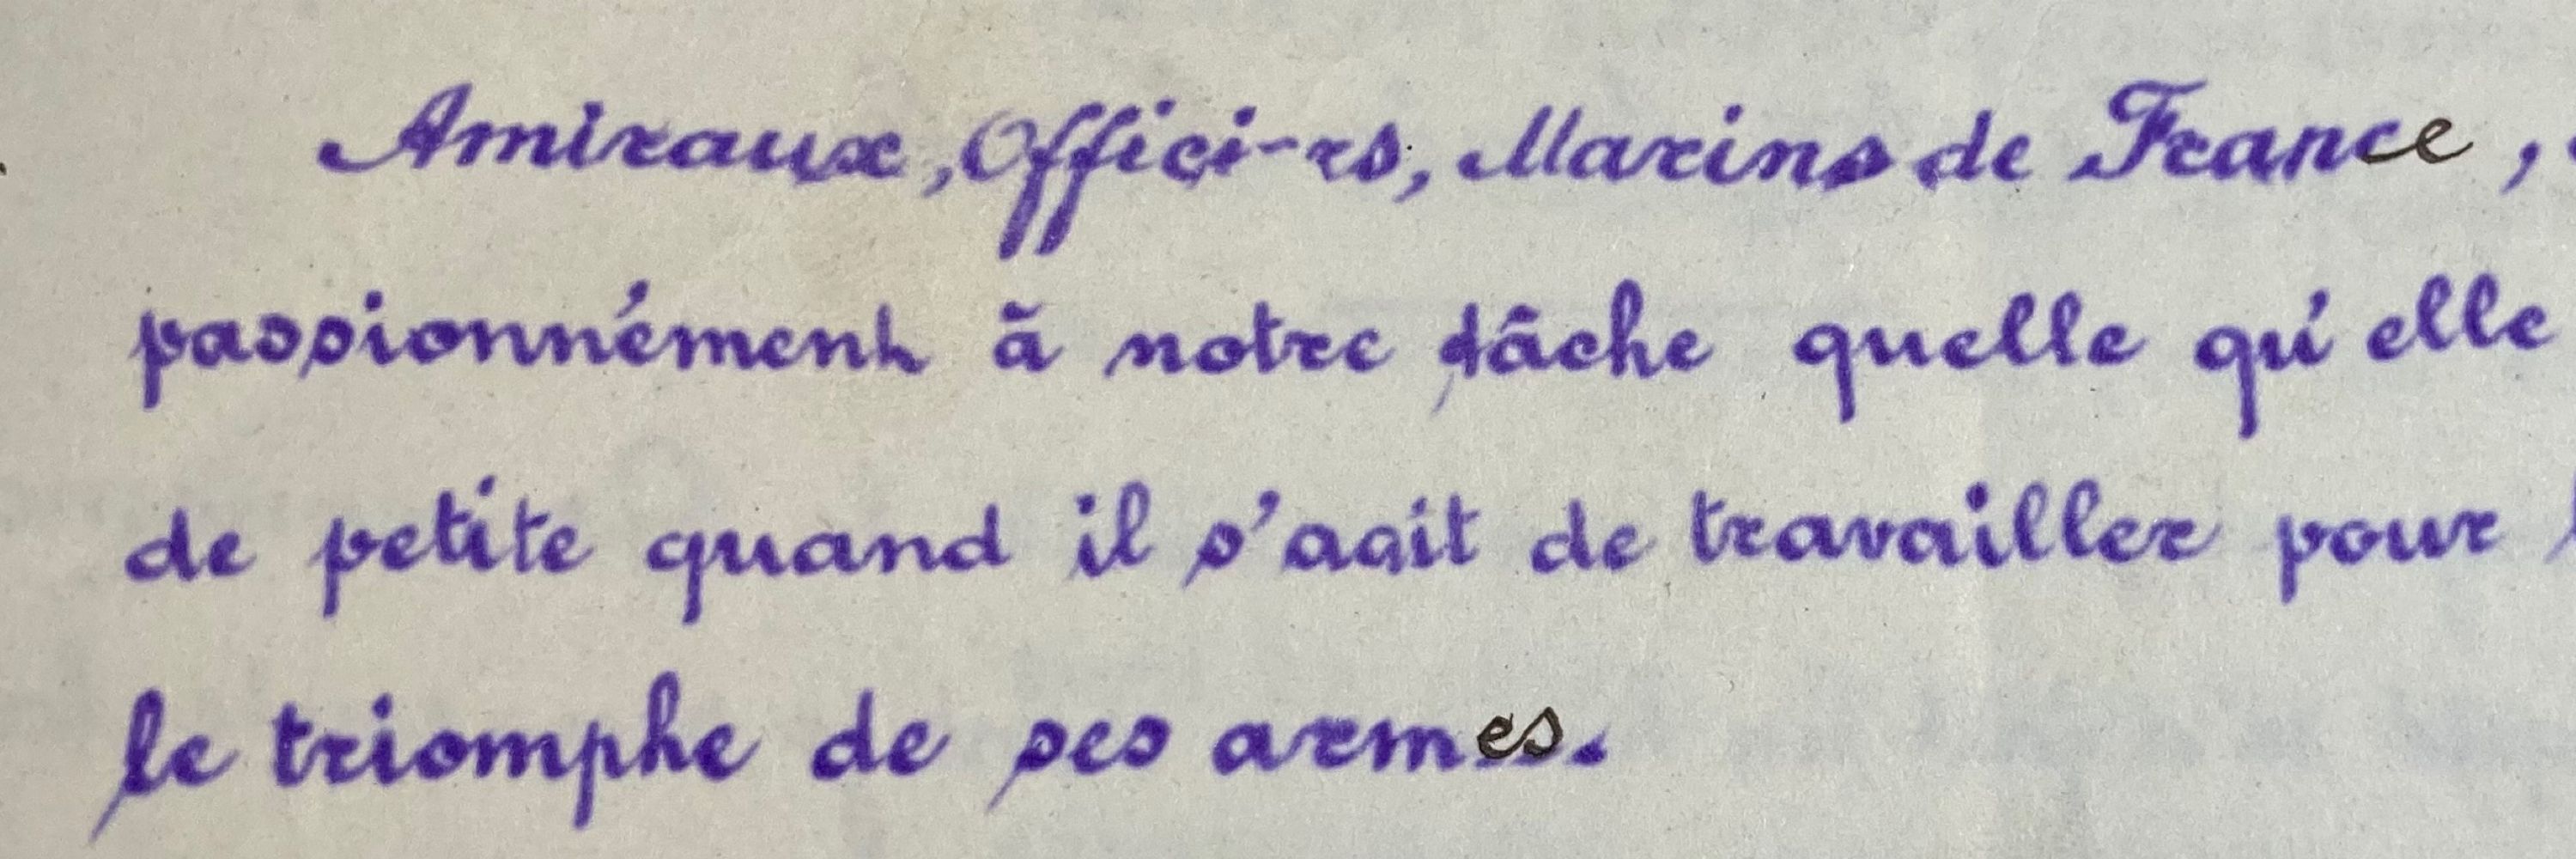 Amiraux, Offici-rs, Marins de France,
passionnément à notre tâche quelle qu'elle
de petite quand il s'agit de travailler pour
le triomphe de ses armes.